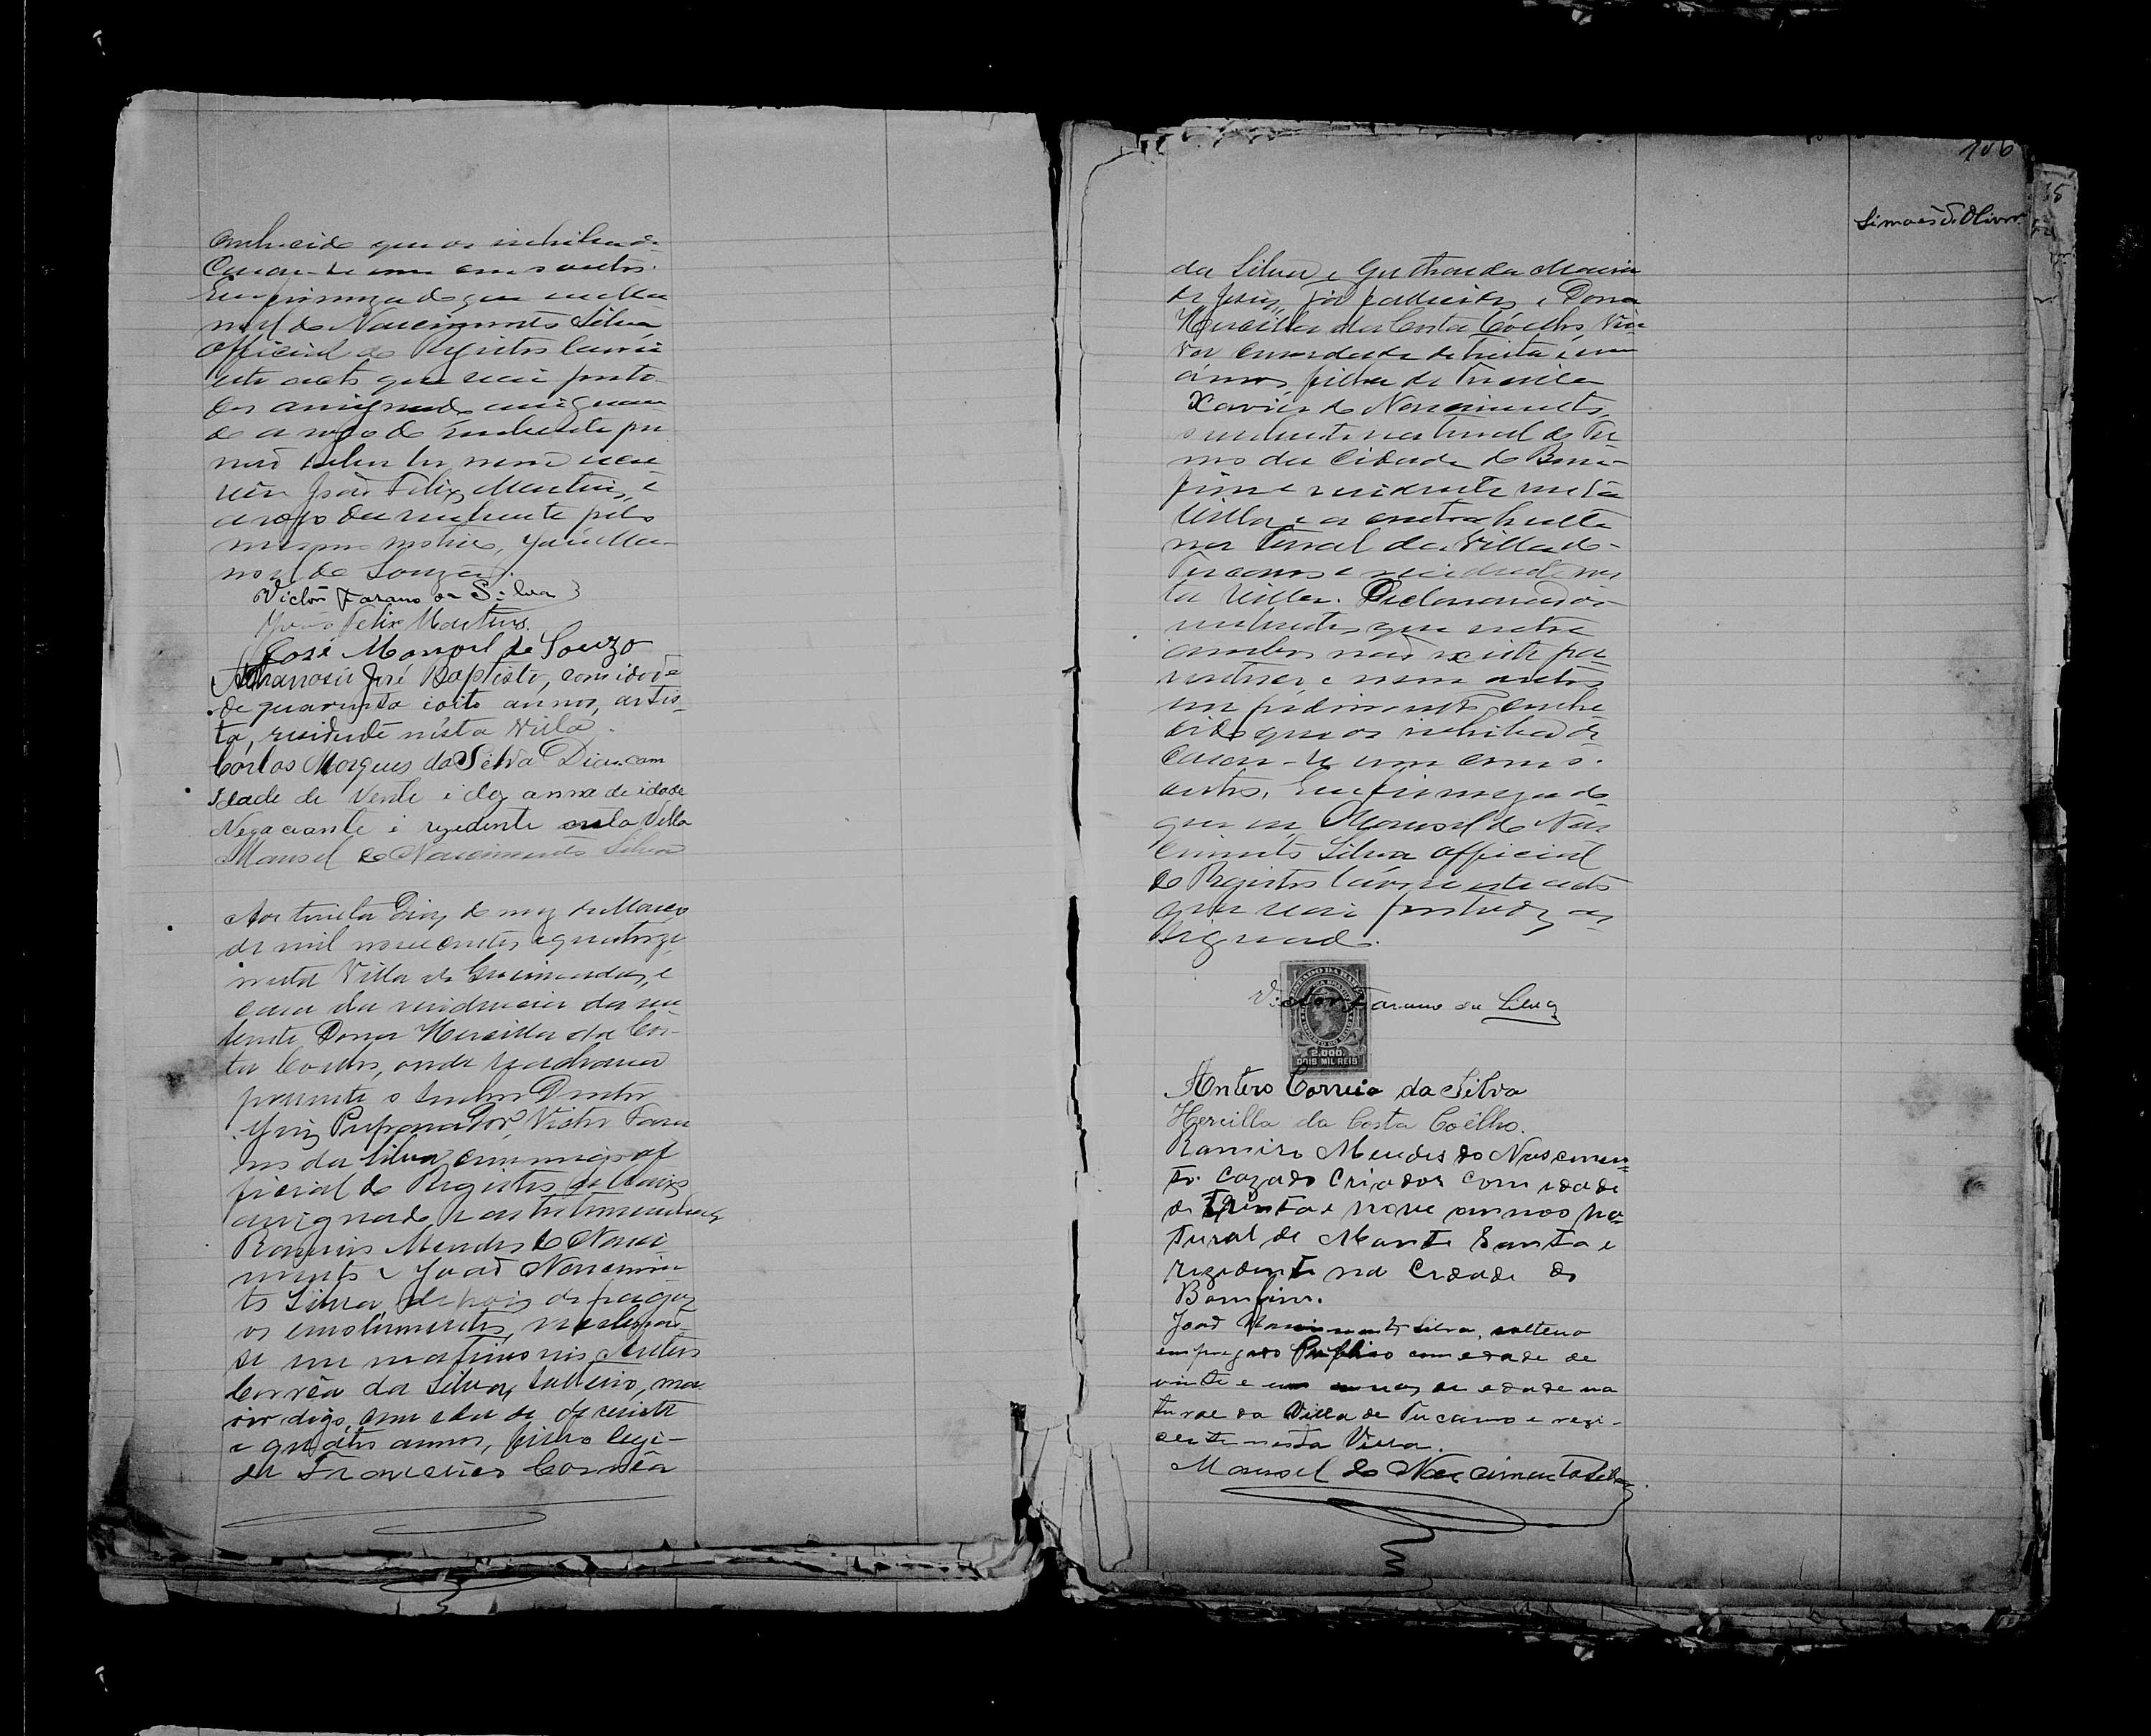 conhecido que os inhiba de
Casar-se um com o outro.
Em firmeza do que eu Ma
noel do Nascimento Silva,
official do Registro lavrei
este acto que vai por to
dos assignado assignan
do a rogo do nubente por
não saber ler nem escre
ver João Felix Martins, e
a rogo da nubente pelo
mesmo motivo, José Ma-
noel de Souza.
Victor Farano da Silva
João Felix Martins.
José Manoel de Souza
Athanasio José Baptista, com idade
de quarenta e oito annos, artis-
ta, residente nésta Villa.
Carlos Marques da Silva Dias com
Idade de Vente i dez annos de idade
Negaciante i rezedente nesta Villa
Manoel do Nascimento Silva
Aos trinta Dias do mez de Março
de mil novecentos e quatorze,
nesta Villa de Queimadas, e
casa da residencia da nu
bente Dona Hercilla da Cos-
ta Coelho, onde se achava
presente o Senhor Doutor
Juiz Preparador, Victor Fara
no da Silva, commigo of
ficial do Registro abaixo
assignado e as testemunhas
Ramiro Mendes do Nasci-
mento e João Nascimen
to Silva, depois de pagos
os emolumentos, receberão-
se em matrimonio Antero
Corrêa da Silva, solteiro, ma
ior digo, com idade de vinte
e quatro annos, filho legi-
de Francisco Corrêa
106
Simões d'Oliver.
da Silva e Gertrudes Maria
de Jesus, já fallecidos, e Dona
Hercilla da Costa Coêlho, Viu
va com idade de trinta e um
annos, filha de
Xavier do Nascimento,
o nubente natural do Ter
mo da Cidade do Bom-
fim e residente nesta
Villa e a contrahente
natural da Villa do
Tucano e residente nes
ta Villa. Declararam os
nubentes que entre
ambos não existe pa
rentesco e nem outro
impedimento conhe
cido que os inhiba de
Casar-se um com o
outro. Em firmeza do
que eu Manoel do Nas
cimento Silva official
do Registro lavrei este acto
que vai por todos as
signado.
Victor Farano da Silva
2.000
DOIS MIL REIS
Antero Correia da Silva
Hercilla da Costa Coêlho.
Ramiro Mendes do Nascimen=
to. Cazado Criador com idade
de Trinta e nove annos na=
tural de Monte Santo e
rezidente na Cidade do
Bomfim.
João Nascimento Silva, solteiro
empregado Publico com edade de
vinte e um annos de edade na
tural da Villa de Tucano e rezi-
dente nesta Villa.
Manoel do Nascimento Silva.